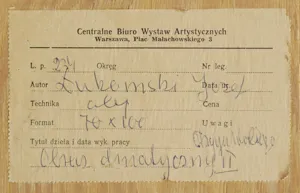 Centralne Biuro Wystaw Artystycznych
Warszawa, Plac Małachowskiego 3
L. p. Okręg Nr leg.
Autor Łukomski Józef Data ur.
Technika olej Cena
Format 70x100 Uwagi
Tytuł dzieła i data wyk. pracy
Obraz dramatyczny VI